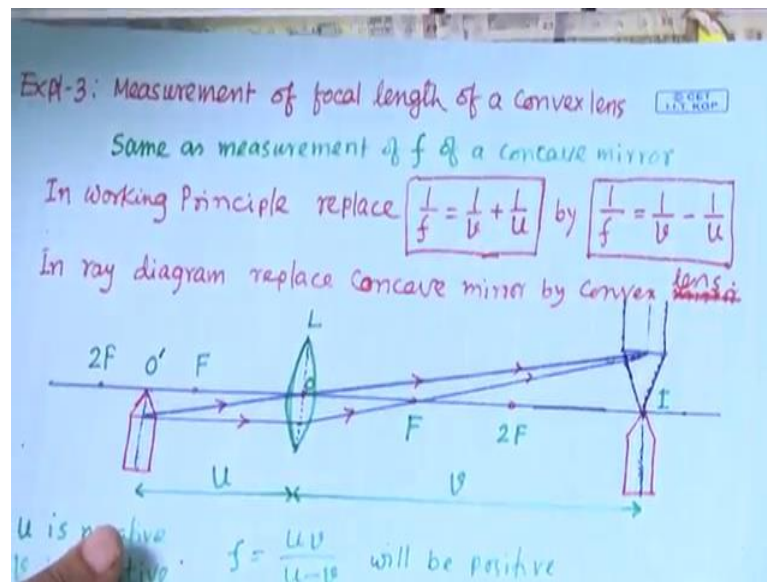 Expt-3: Measurement of focal length of a Convex lens
© CET
I.I.T. KGP
Same as measurement of f of a concave mirror
In Working Principle replace 1/f = 1/v + 1/u by 1/f = 1/v - 1/u
In ray diagram replace Concave mirror by Convex lens
L
2F O' F
O
F 2F I
u v
u is
f = uv/u-v will be positive